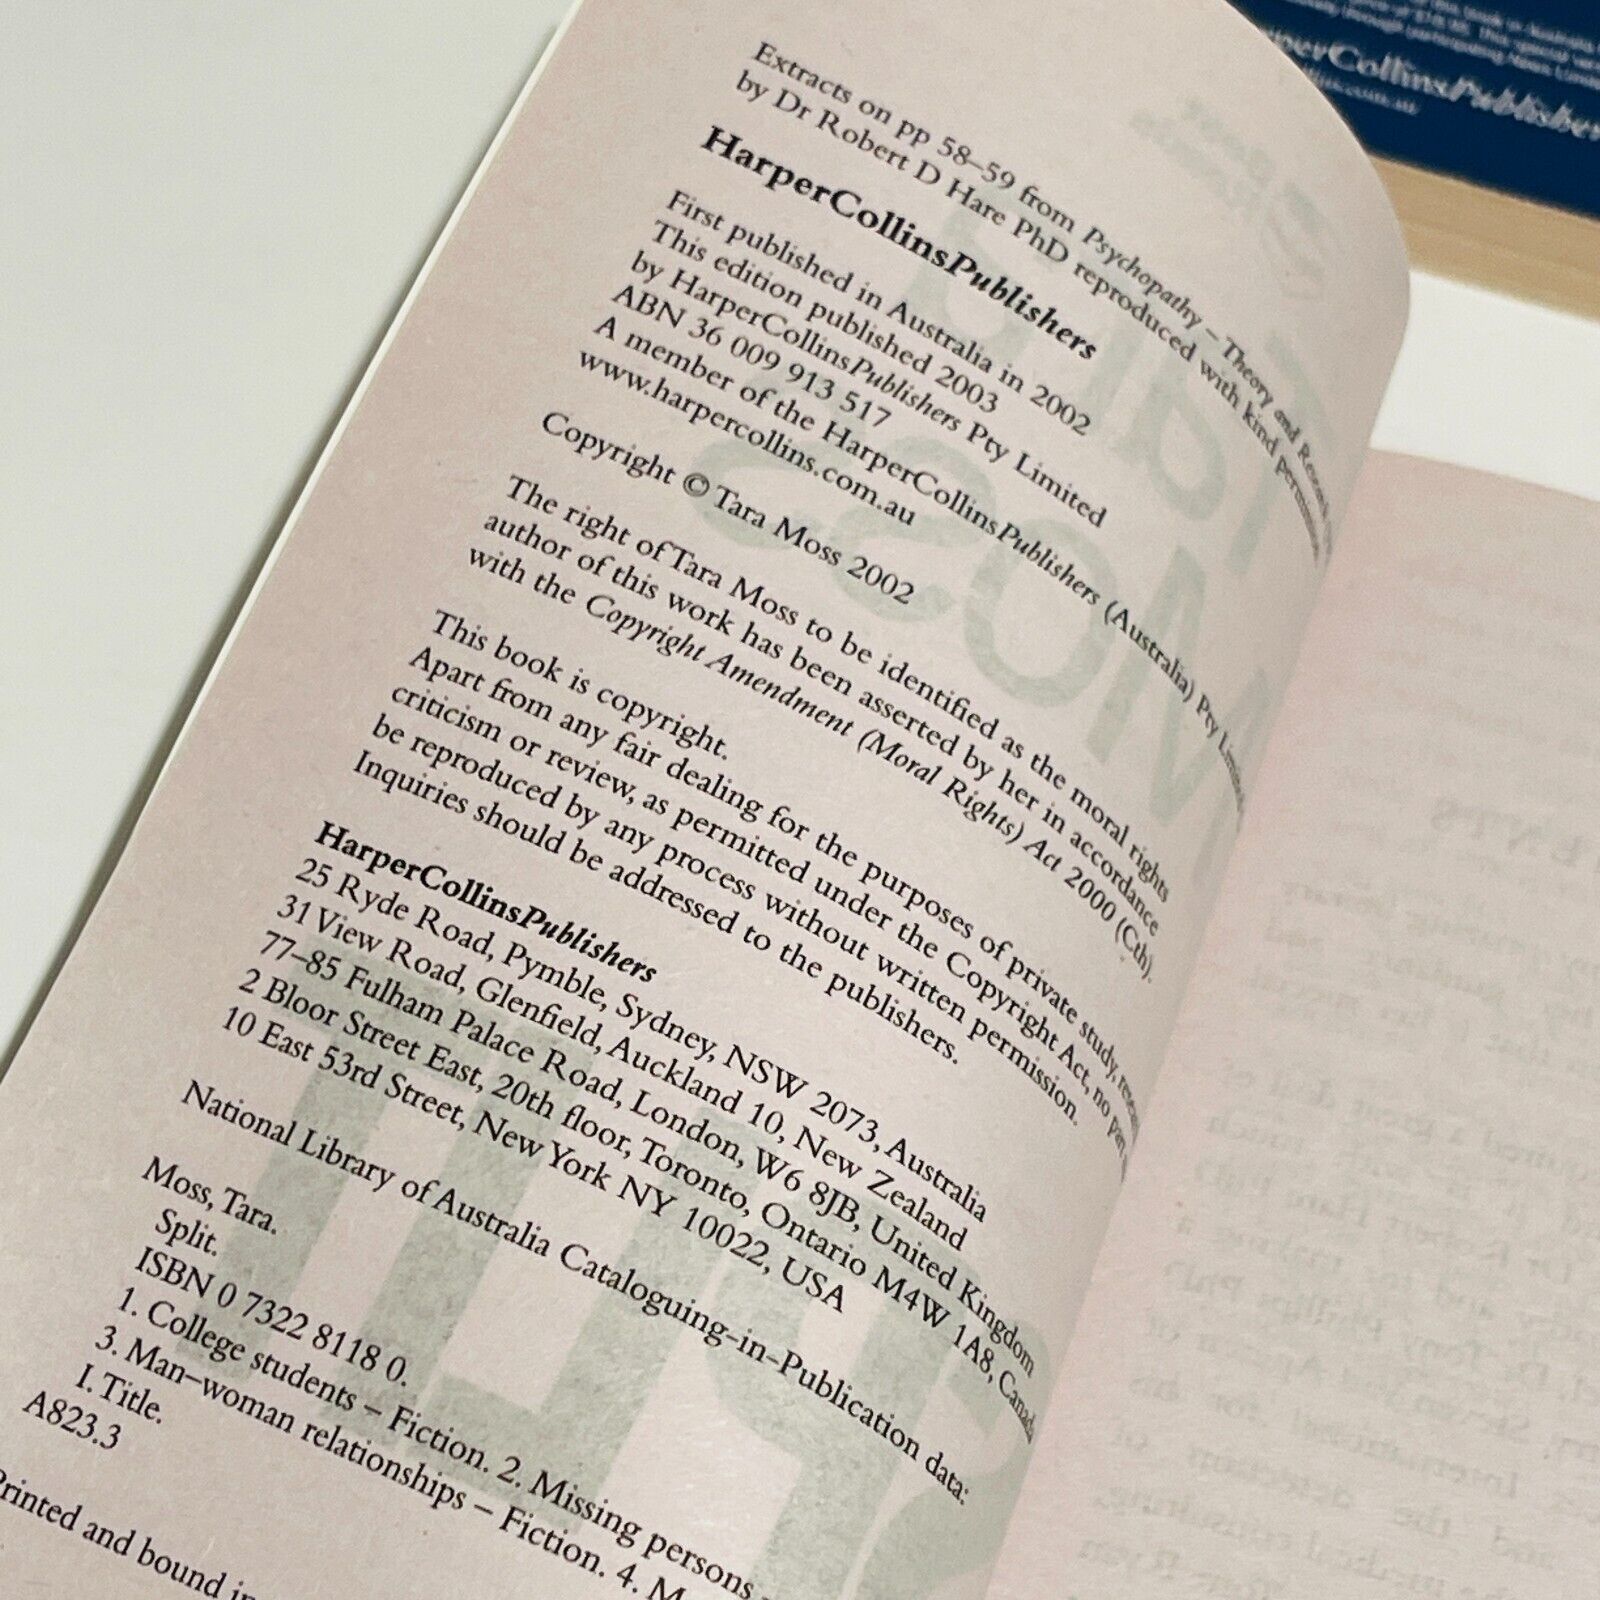 Extracts on pp 58–59 from Psychopathy – Theory and Research
by Dr Robert D Hare PhD reproduced with kind permission
HarperCollinsPublishers
First published in Australia in 2002
This edition published 2003
by HarperCollinsPublishers Pty Limited
ABN 36 009 913 517
A member of the HarperCollinsPublishers (Australia) Pty Limited
www.harpercollins.com.au
Copyright © Tara Moss 2002
The right of Tara Moss to be identified as the moral rights
author of this work has been asserted by her in accordance
with the Copyright Amendment (Moral Rights) Act 2000 (Cth).
This book is copyright.
Apart from any fair dealing for the purposes of private study,
criticism or review, as permitted under the Copyright Act, no part
be reproduced by any process without written permission.
Inquiries should be addressed to the publishers.
HarperCollinsPublishers
25 Ryde Road, Pymble, Sydney, NSW 2073, Australia
31 View Road, Glenfield, Auckland 10, New Zealand
77–85 Fulham Palace Road, London, W6 8JB, United Kingdom
2 Bloor Street East, 20th floor, Toronto, Ontario M4W 1A8, Canada
10 East 53rd Street, New York NY 10022, USA
National Library of Australia Cataloguing-in-Publication data:
Moss, Tara.
Split.
ISBN 0 7322 8118 0.
1. College students – Fiction. 2. Missing persons –
3. Man–woman relationships – Fiction. 4. M
I. Title.
A823.3
Printed and bound in
HarperCollinsPublishers